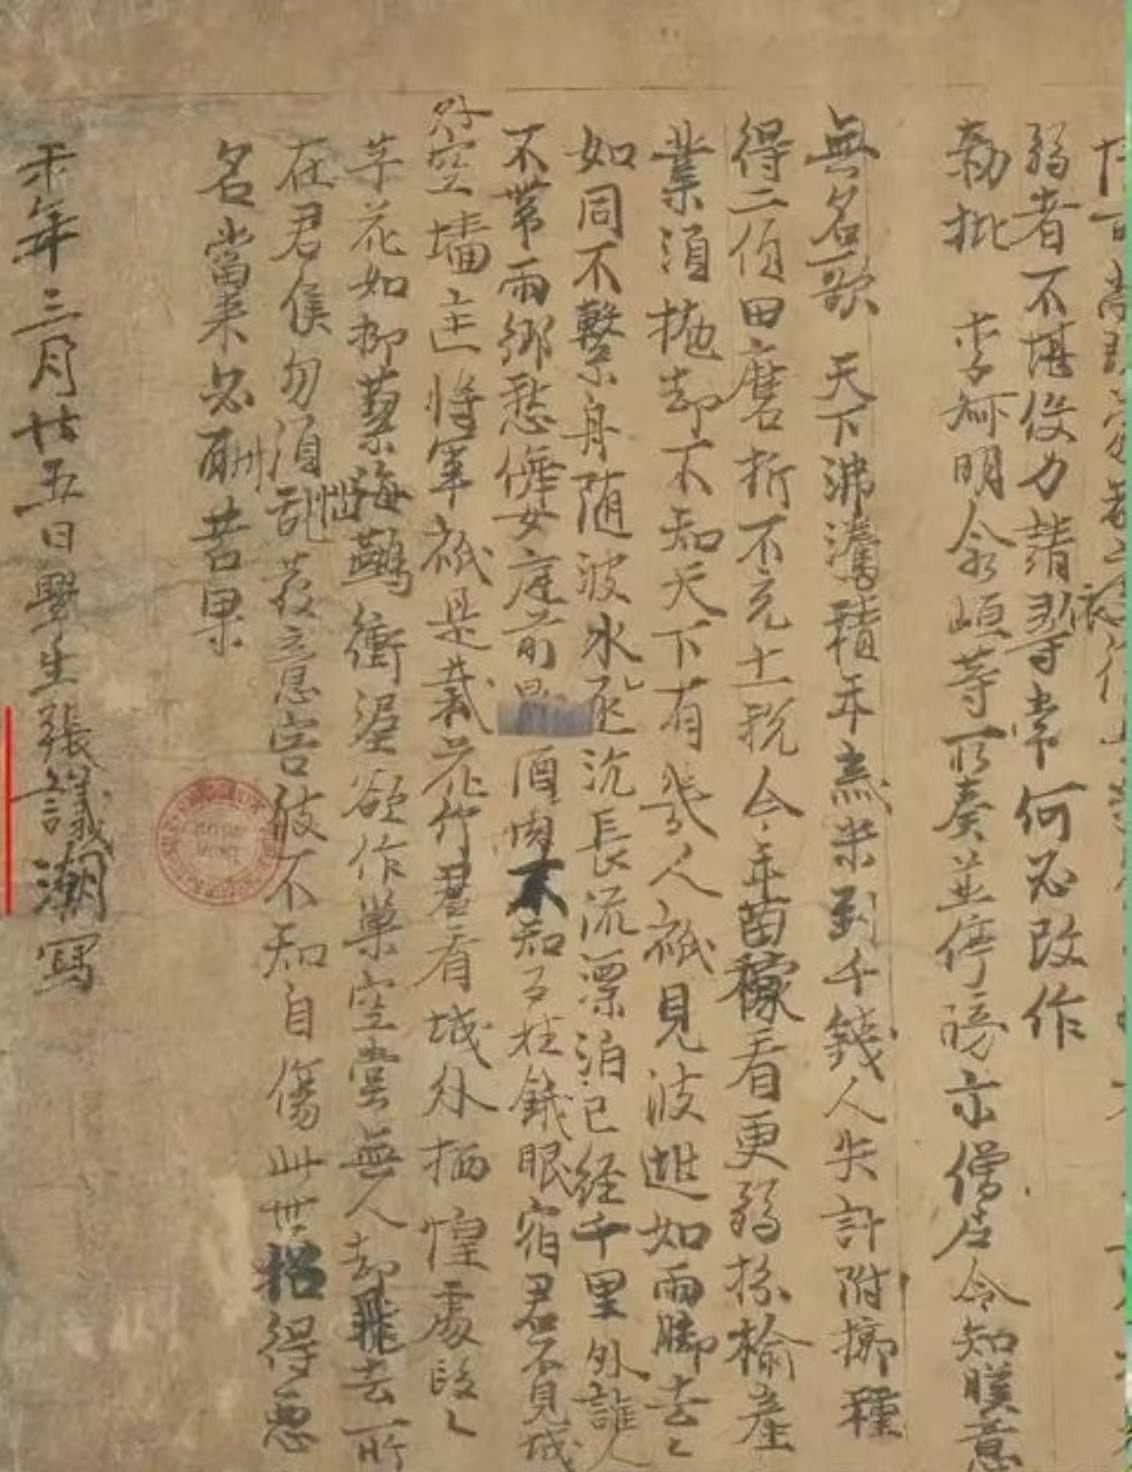 弱者不堪伇力請依尋常何必改作
勑批　李舸明令峘等所奏並停牓示僧尼令知朕意
無名歌　天下沸騰積年歲米到千錢人失計附擲種
得二佰田磨折不充十一稅今年苗稼看更弱枌榆產
業須拋却不知天下有幾人祇見波逃如雨脚去〻
如同不繫舟隨波水㲽沉長流漂泊已經千里外誰人
不帶雨鄉愁儛女庭前酒肉不知百姓餓眠宿君不見城
外空墻匡將軍祇是栽花竹君看城外栖惶處段〻
芊花如柳蘂海鷰銜泥欲作巢空堂無人却飛去所
在君侯勿須亂茲意害彼不知自傷此世招得惡
名當來必酬苦果
未年三月廿五日學生張議潮寫